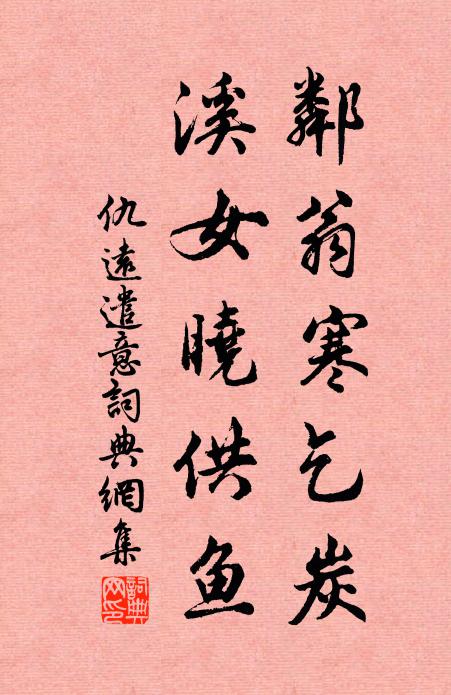 鄰翁寒乞炭
溪女曉供魚
仇遠遣意詞典網集
詞典網印